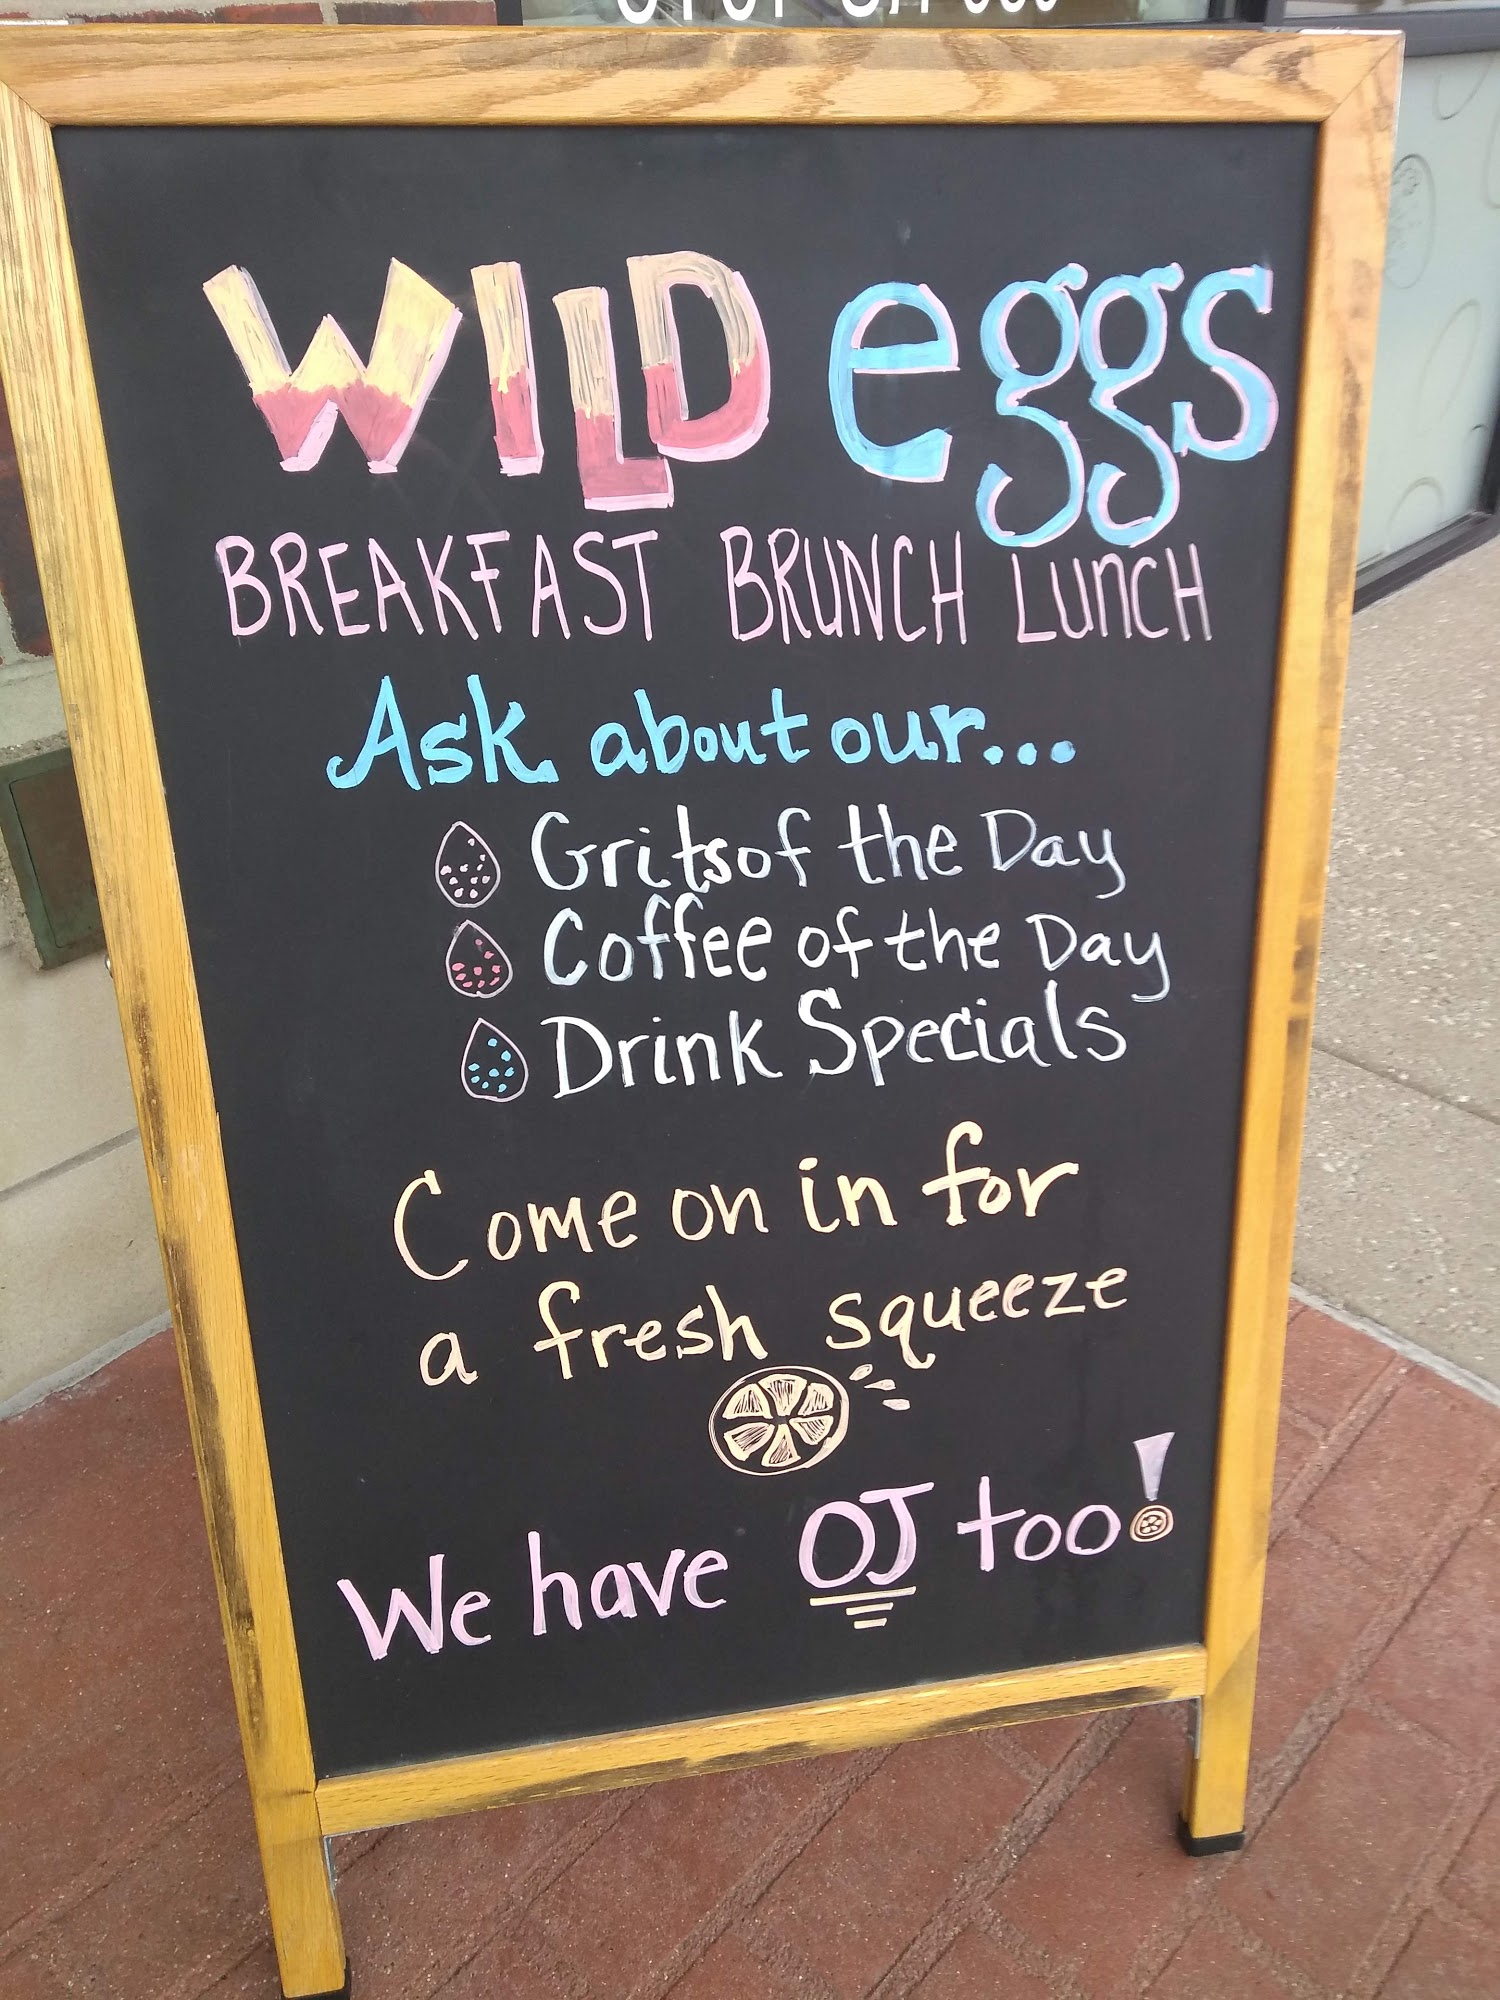 WILD eggs
BREAKFAST BRUNCH LUnCH
Ask about our...
Grits of the Day
Coffee of the Day
Drink Specials
Come on in for
a fresh squeeze
We have OJ too!